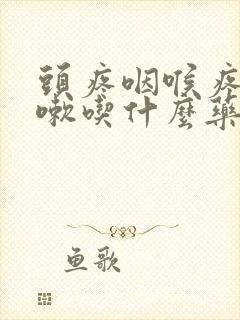 頭疼咽喉疼
嗽喫什麼藥
鱼歌